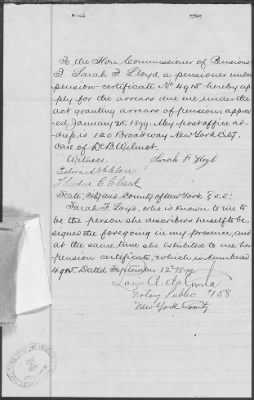 To the Hon. Commissioner of Pensions
I Sarah F. Lloyd a pensioner under
pension certificate No 4915 hereby ap
ply for the arrears due me under the
act granting arrears of pensions, approv
ed January 25. 1879. My post office ad-
dress is 120 Broadway New York City,
Care of Dr B. Wilmot.
Witness Sarah F Lloyd
Edward
Clark
State, City and County of New York } s.s.
Sarah F. Loyd, who is known to me to
be the person she describes herself to be,
signed the foregoing in my presence, and
at the same time she exhibited to me her
pension certificate, which is numbered
4915. Dated September 12th 1879
Louis A.
Notary Public #158
New York County